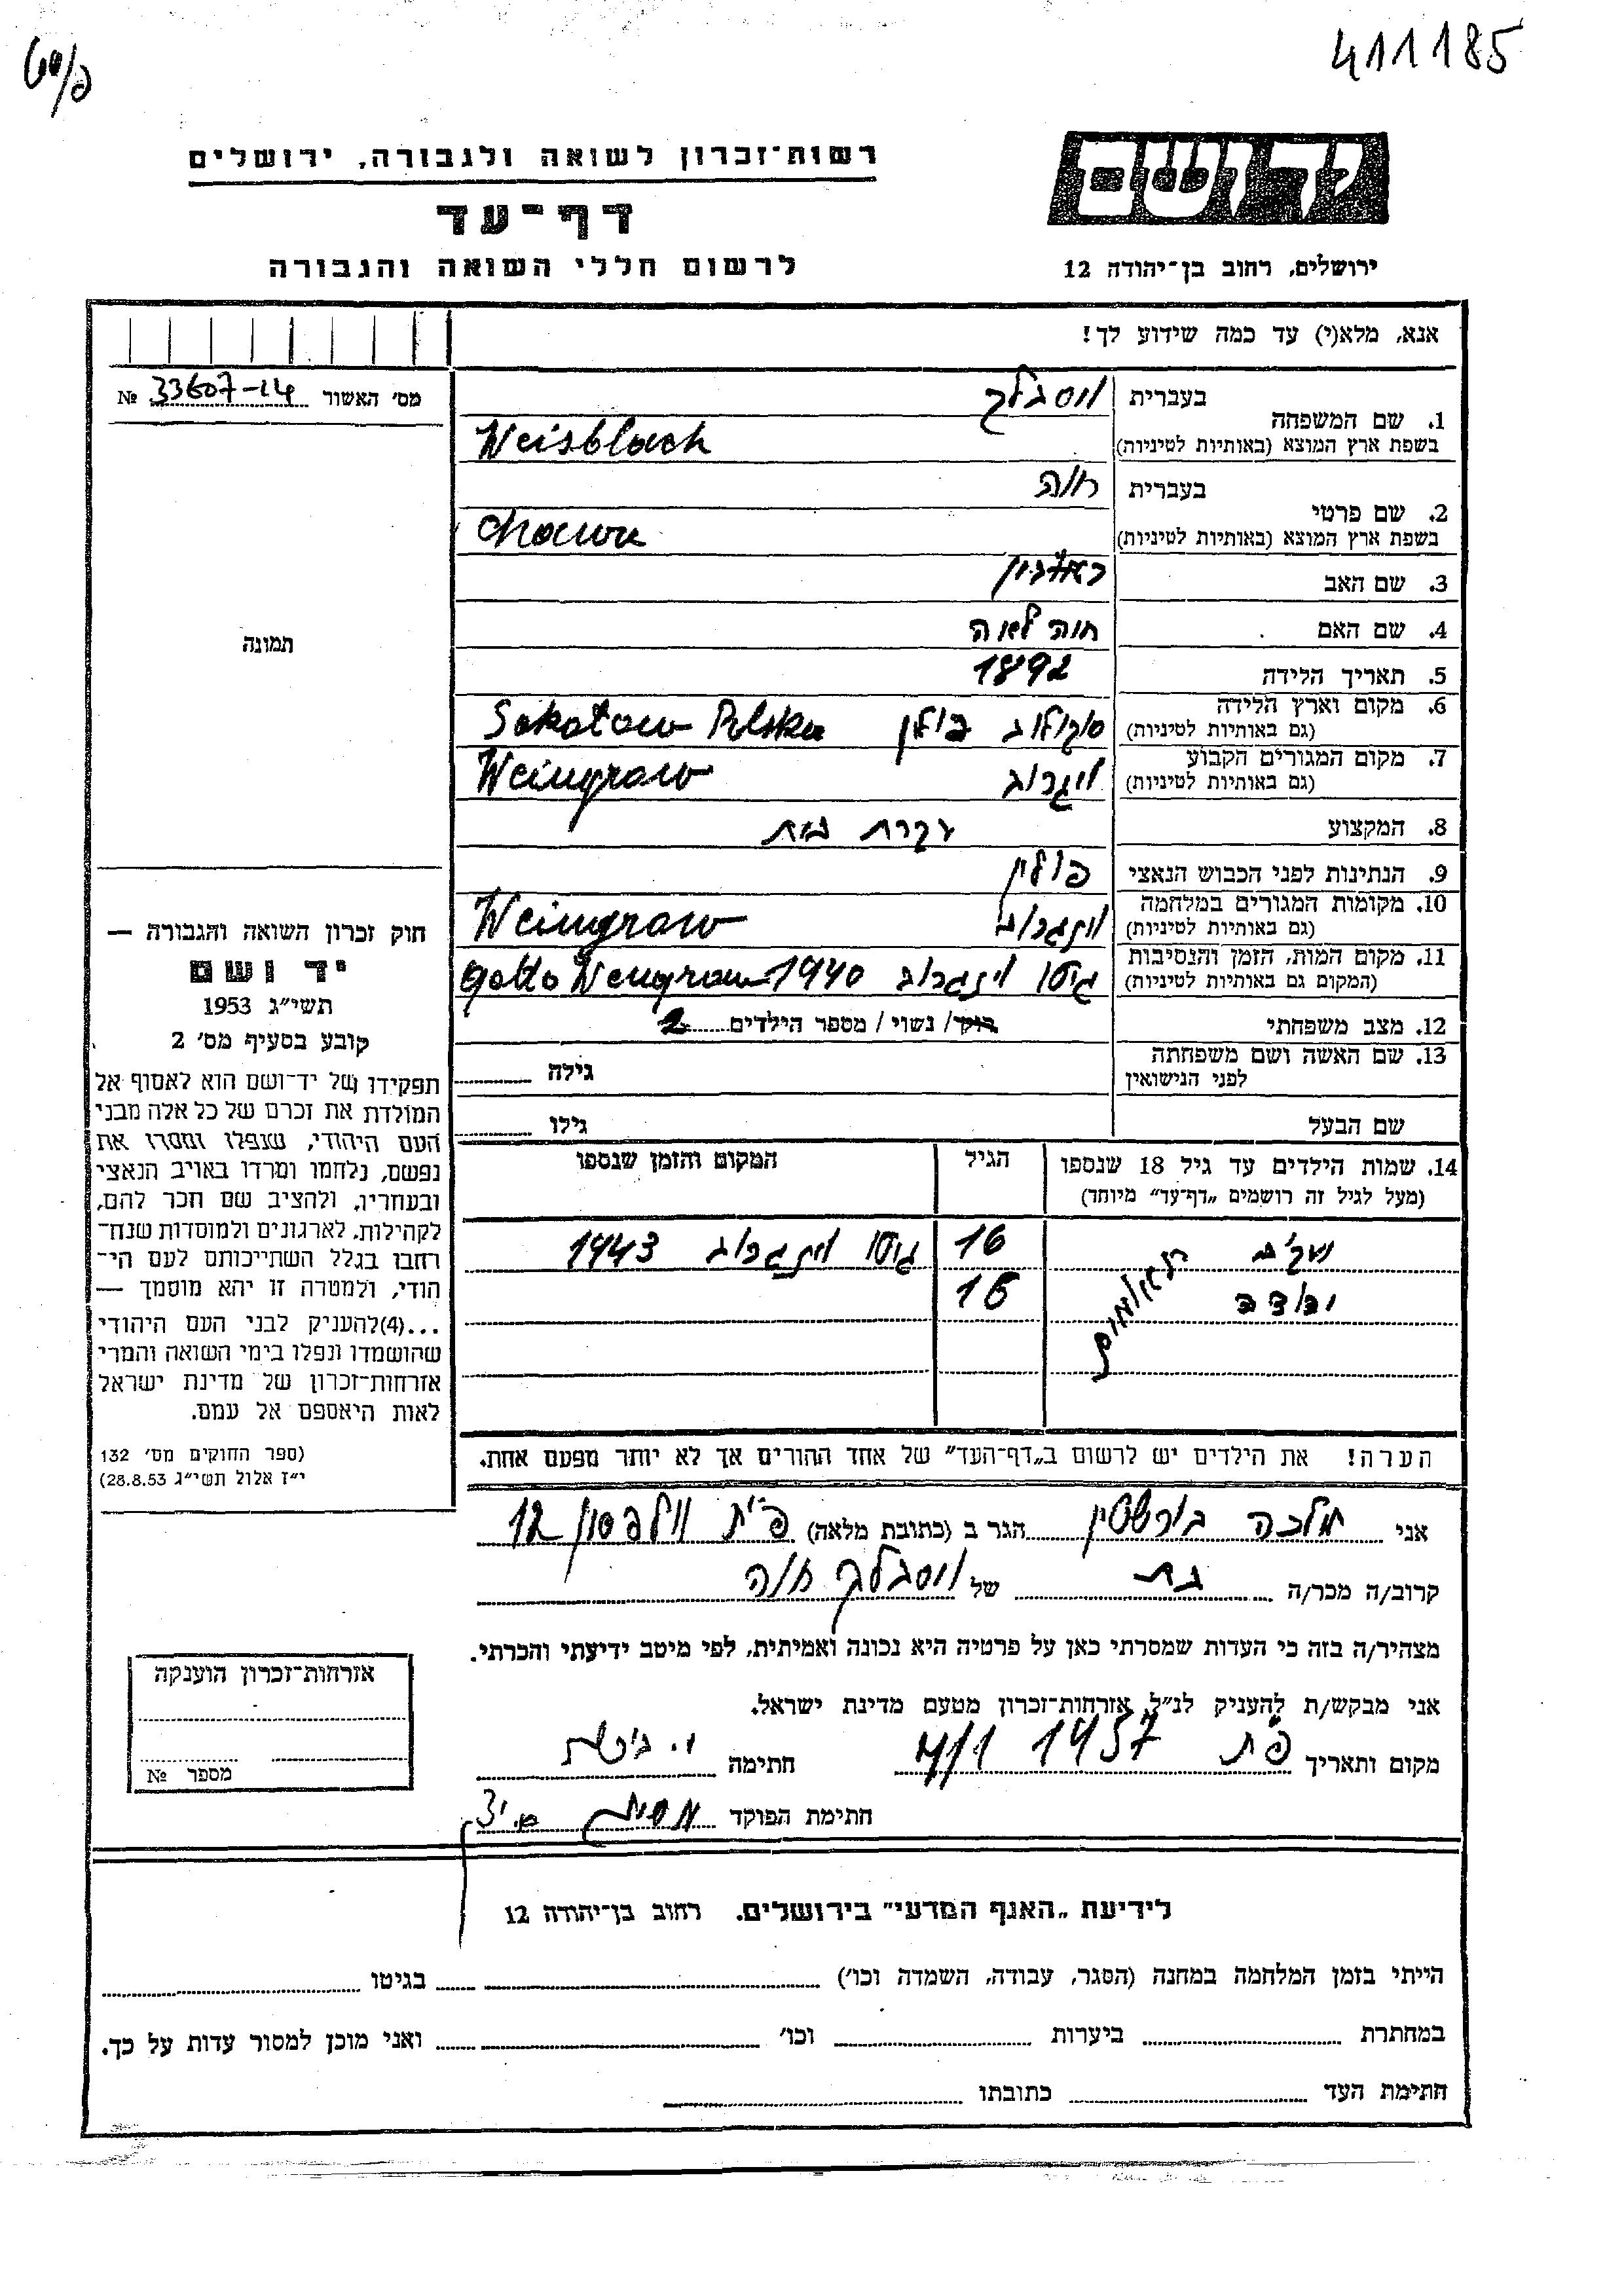 411185
רשות־זכרון לשואה ולגבורה, ירושלים
יד ושם
דף־עד
לרשום חללי השואה והגבורה
ירושלים, רחוב בן־יהודה 12
אנא, מלא(י) עד כמה שידוע לך!
מס׳ האשור № 33607-14
1. שם המשפחה
בעברית
בשפת ארץ המוצא (באותיות לטיניות)
Weisblach
2. שם פרטי
בעברית חוה
בשפת ארץ המוצא (באותיות לטיניות)
3. שם האב
4. שם האם חוה לאה
5. תאריך הלידה 1892
6. מקום וארץ הלידה
(גם באותיות לטיניות) סוקולוב פולין Sokotow Polska
7. מקום המגורים הקבוע
(גם באותיות לטיניות) וינגרוב Weingrow
8. המקצוע עקרת בית
9. הנתינות לפני הכבוש הנאצי פולין
10. מקומות המגורים במלחמה
(גם באותיות לטיניות) וינגרוב Weingrow
11. מקום המות, הזמן והנסיבות
(המקום גם באותיות לטיניות) גיטו וינגרוב 1940
12. מצב משפחתי רוק/ נשוי / מספר הילדים 2
13. שם האשה ושם משפחתה
לפני הנישואין
גילה
שם הבעל גילו
14. שמות הילדים עד גיל 18 שנספו
(מעל לגיל זה רושמים „דף־עד״ מיוחד)
הגיל
המקום והזמן שנספו
16 גיטו וינגרוב 1943
16
תאומים
הערה! את הילדים יש לרשום ב„דף־העד״ של אחד ההורים אך לא יותר מפעם אחת.
תמונה
חוק זכרון השואה והגבורה —
יד ושם
תשי״ג 1953
קובע בסעיף מס׳ 2
תפקידו של יד־ושם הוא לאסוף אל
המולדת את זכרם של כל אלה מבני
העם היהודי, שנפלו ומסרו את
נפשם, נלחמו ומרדו באויב הנאצי
ובעוזריו, ולהציב שם וזכר להם,
לקהילות, לארגונים ולמוסדות שנח־
רבו בגלל השתייכותם לעם הי־
הודי, ולמטרה זו יהא מוסמך —
...(4)להעניק לבני העם היהודי
שהושמדו ונפלו בימי השואה והמרי
אזרחות־זכרון של מדינת ישראל
לאות היאספם אל עמם.
(ספר החוקים מס׳ 132
י״ז אלול תשי״ג 28.8.53)
אני מלכה בורשטין הגר ב (כתובת מלאה) פ״ת וולפסון 12
קרוב/ה מכר/ה בת של חוה
מצהיר/ה בזה כי העדות שמסרתי כאן על פרטיה היא נכונה ואמיתית, לפי מיטב ידיעתי והכרתי.
אני מבקש/ת להעניק לנ״ל אזרחות־זכרון מטעם מדינת ישראל.
מקום ותאריך פ״ת 1957 חתימה
חתימת הפוקד
אזרחות־זכרון הוענקה
מספר №
לידיעת „האגף המדעי״ בירושלים. רחוב בן־יהודה 12
הייתי בזמן המלחמה במחנה (הסגר, עבודה, השמדה וכו׳) בגיטו
במחתרת ביערות וכו׳ ואני מוכן למסור עדות על כך.
חתימת העד כתובתו